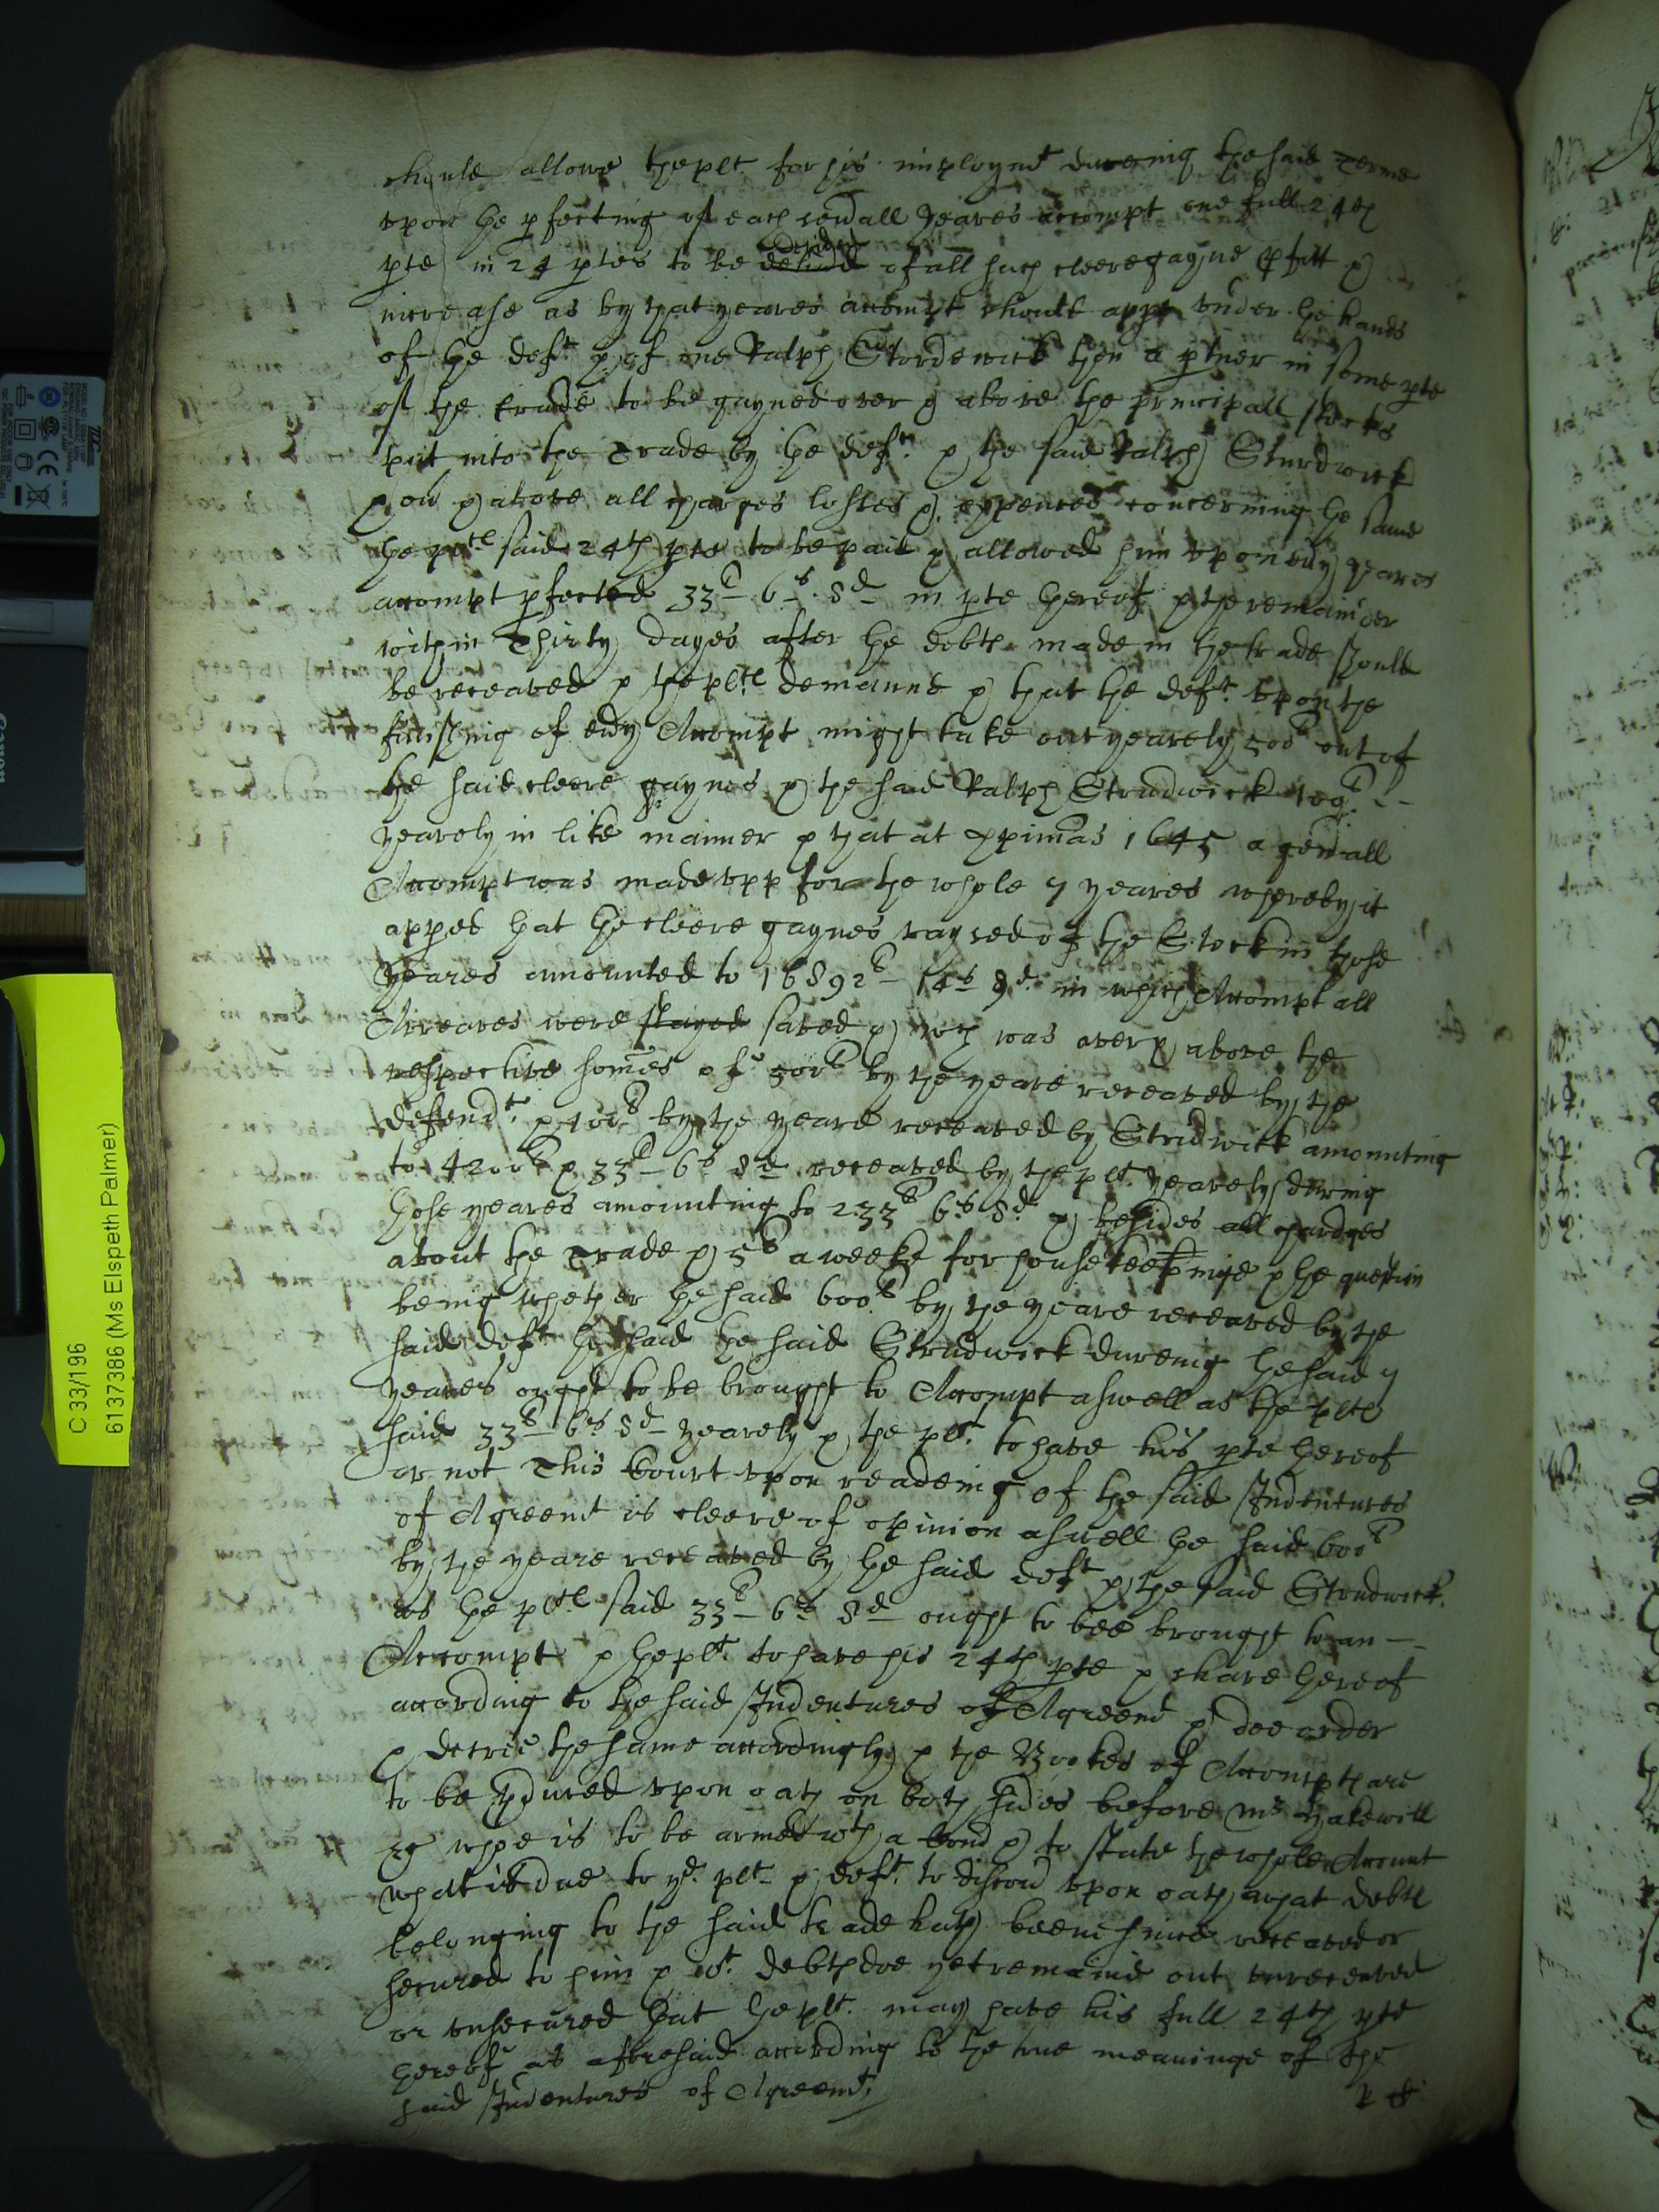 should allowe the plt. for his imploymt dureing the said Terme
upon the pfecting of each sevrall yeares accompt one full 24th
pte in 24 ptes to be devided of all such cleere gayne pfitt &
increase as by that yeares accompt should appr under the hands
of the deft. & of one Ralph Stordewick then a ptner in some pte
of the trade to be gayned over & above the principall stocks
put into the Trade by the deft. & the said Ralph Sturdwick
& ovr & above all charges losses & expences concerning the same
the plts said 24th pte to be paid & allowed him upon evry yeares
accompt pfected 33l 6s 8d in pte thereof & the remainder
within Thirty dayes after the debts made in the trade should
be receaved & the plts demaund & that the deft. upon the
finishing of evry Accompt might take out yearely 500l out of
the said cleere gaynes & the said Ralph Strudwick 100l --
yearely in like manner & that at Xpimas 1645 a genrall
Accompt was made upp for the whole 7 yeares whereby it
appes that the cleere gaynes raysed of the Stock in those
Yeares amounted to 16892l 14s 9d in which Accompt all
Arreares were stayed saved & wch was over & above the
respective somes of 500l by the yeare receaved by the
defendt. & 100l by the yeare receaved by Strudwick amounting
to 4200l & 33l 6s 8d receaved by the plt. yearely during
those yeares amounting to 233l 6s 8d & besides all chardges
about the Trade & 5l a weeke for housekeepinge & the question
being whether the said 600l by the yeare receaved by the
said deft the said the said Strudwick dureing the said 7
yeares ought to be brought to Accompt aswell as the plts
said 33l 6s 8d yearely & the plt. to have his pte thereof
or not This Court upon readeing of the said Indentures
of Agreemt is cleere of opinion aswell the said 600l
by the yeare receaved by the said deft & the said Strudwick
as the plts said 33l 6s 8d ought to bee brought to an -
Accompt & the plt to have his 24th pte & share thereof
according to the said Indentures of Agreemt & doe order
& decree the same accordingly & the Bookes of Accompts are
to be pduced upon oath on both sides before Mr Hakewill
whoe is to be armed wth a Comd & to state the whole Account
what is due to ye plt & deft. to discovr upon oath what debts
belonging to the said trade hath beene since receaved or
secured to him & wt. debts doe yet remaine out unreceaved
or unsecured that the plt. may have his full 24th pte
thereof as aforesaid according to the true meaninge of the
said Indentures of Agreemt.
C 33/196
6137386 (Ms Elspeth Palmer)
Canon